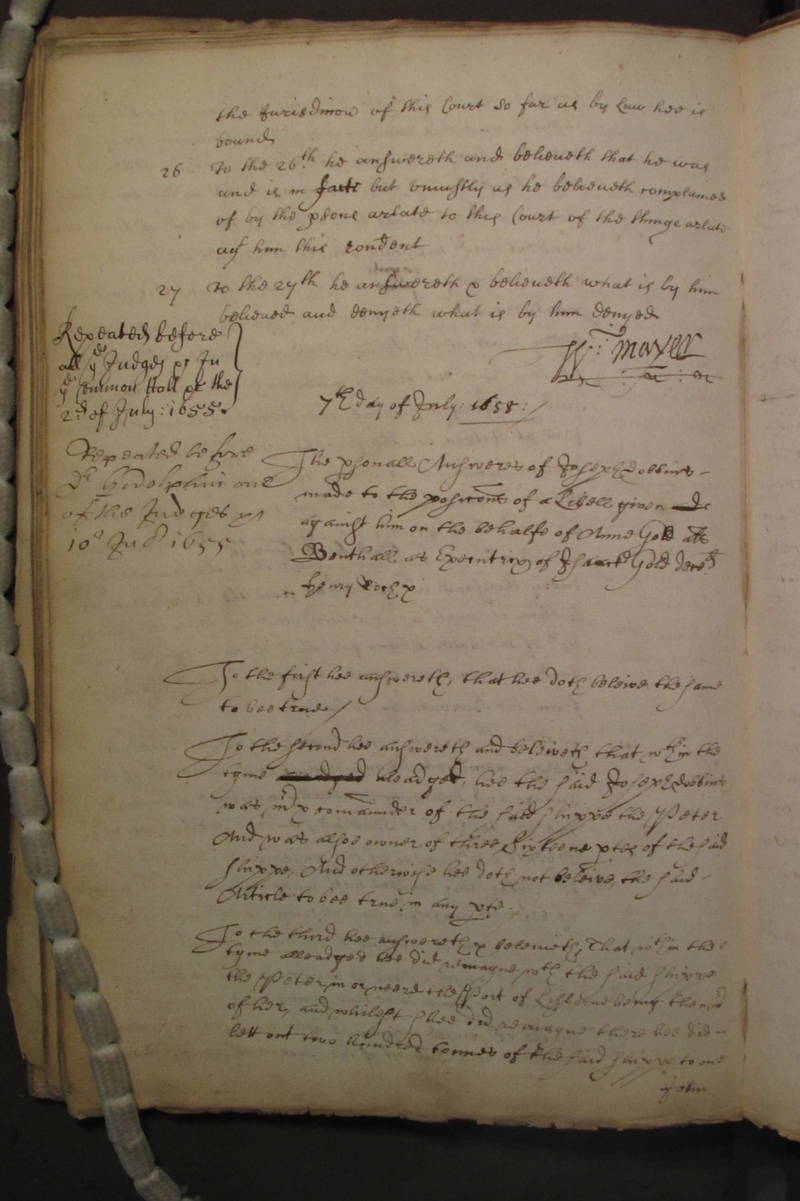 the Jurisdiccon of this Court so far as by Law hee is
bound
26 To the 26th he answereth and believeth that he was
and is in facte but uniustly as he believeth complained
of by the psons arlate to this Court of the things arlate
agt him this rondent
27 To the 27th he answereth & believeth what is by him
believed and denyeth what is by him denyed
Wm: Mayer
Repeated before
all ye Judges pr Ju
ye Common Hall pr the
2d of July: 1655.
7th day of July: 1655:/
Repeated before
Dr Godolphin one
of the Judges
10o Ju 1655
The psonall Answeres of Joseph Dobbins
made to the positions of a Libell given
against him on the behalfe of Anne Gold als
Benthall as Executrix of Gold decd
To the first hee answereth, that hee doth beleive the same
to bee true/
To the second hee answereth and beleiveth that wthin the
tyme alleadged, hee the said Joseph Dobbins
was Mr & comander of the said shippe the Peter
And was alsoe owner of three sixteene ptes of the said
shippe, And otherwise hee doth not beleive the said
Article to bee true in any pte.
To the third hee answereth & beleiveth, That wthin the
tyme alleadged hee did remayne wth the said shippe
the Peter, in or neere the Port of being then Mr
of her, and whilest shee did remayne there hee did
lett out two hundred tonnes of the said shippe to one
John